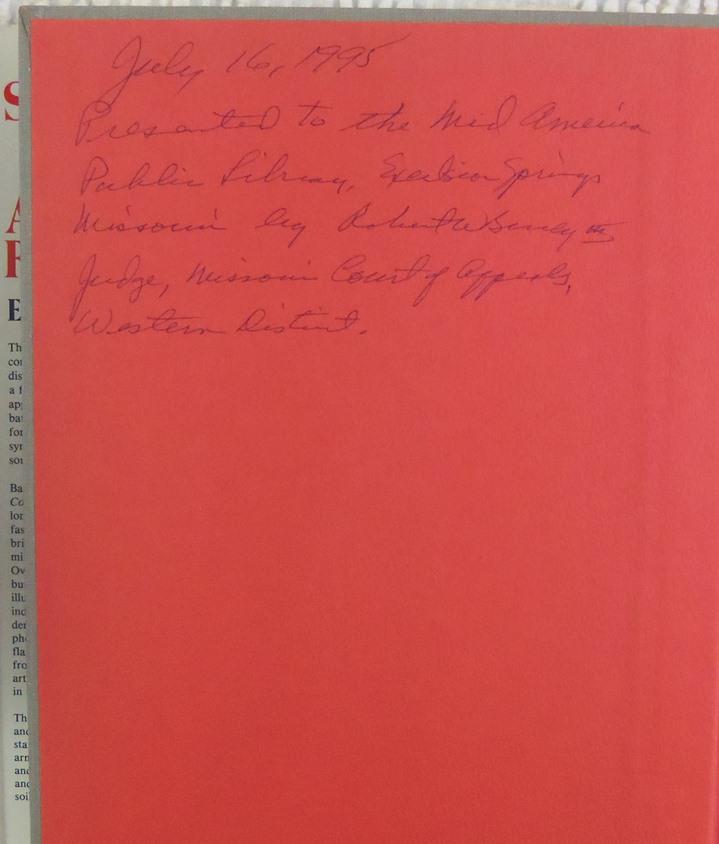 July 16, 1995
Presented to the Mid America
Public Library, Excelsior Springs
Missouri by Robert W Berrey III
Judge, Missouri Court of Appeals,
Western District.
S
A
F
E
Th
co
dis
a f
ap
ba
for
syr
so
Ba
Co
lor
fas
bri
mi
Ov
bu
illu
inc
der
ph
fla
fro
art
in
Th
and
sta
arn
and
and
soi